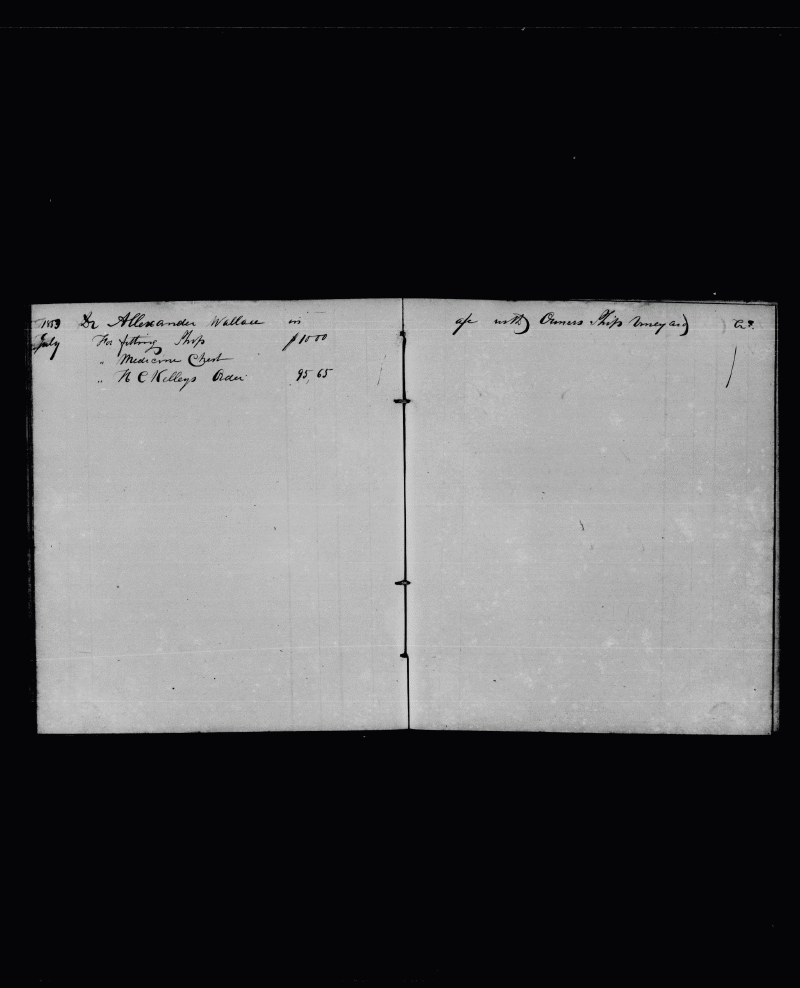 1853 Dr Allexander Wallace in a/c with Owners Ship Vineyard Cr.
July For fitting Ship $ 10 00
" Medicine Chest
" N C Kelleys Order 95,65